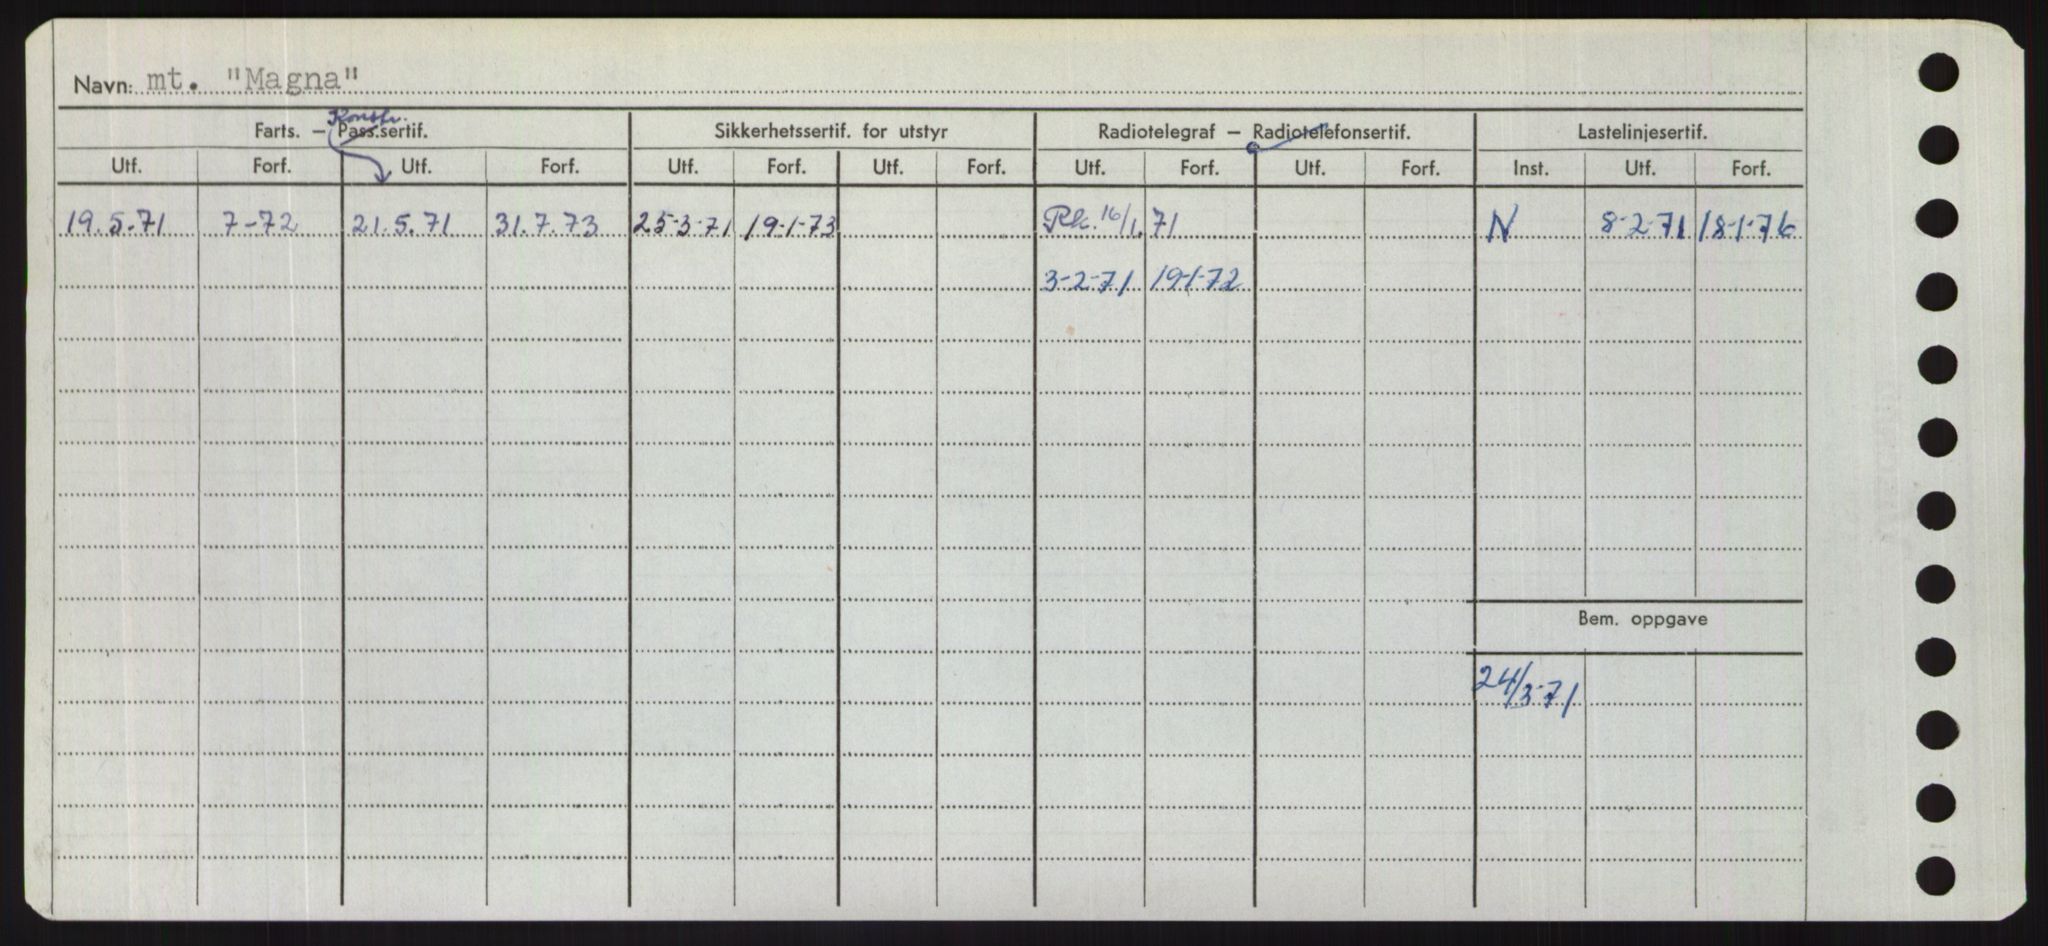 Navn: mt. "Magna"
Konstr.
Farts. – Pass.sertif. Sikkerhetssertif. for utstyr Radiotelegraf – Radiotelefonsertif. Lastelinjesertif.
Utf. Forf. Utf. Forf. Utf. Forf. Utf. Forf. Utf. Forf. Utf. Forf. Inst. Utf. Forf.
19.5.71 7-72 21.5.71 31.7.73 25-3-71 19-1-73 16/1.71 N 8-2-71 18-1-76
3-2-71 19-1-72
Bem. oppgave
24/3-71